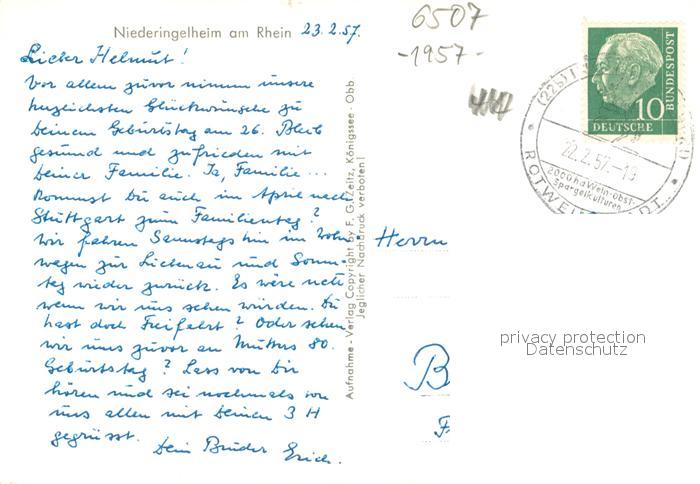 Niederingelheim am Rhein 23.2.57.
Lieber Helmut!
Vor allem zuvor nimm unsere
herzlichsten Glückwünsche zu
Deinem Geburtstag am 26. Bleib
gesund und zufrieden mit
Deiner Familie. Ja, Familie...
Kommst Du auch im April nach
Stuttgart zum Familientag?
Wir fahren Samstags hin im Wohn-
wagen zur Liebenau und Sonn-
tag wieder zurück. Es wäre nett
wenn wir uns sehen würden. Du
hast doch Freifahrt? Oder sehen
wir uns zuvor an Mutters 80.
Geburtstag? Lass von Dir
hören und sei nochmals von
uns allen mit Deinen 3 H
gegrüsst.
Dein Bruder Erich.
Aufnahme - Verlag Copyright by F. G. Zeitz, Königssee - Obb
Jeglicher Nachdruck verboten!
6507
-1957-
10
DEUTSCHE
BUNDESPOST
(22b)
22.2.57.-19
2000 ha Wein-Obst-
Spargelkulturen
ROTWEINSTADT
Herrn
B
F
privacy protection
Datenschutz